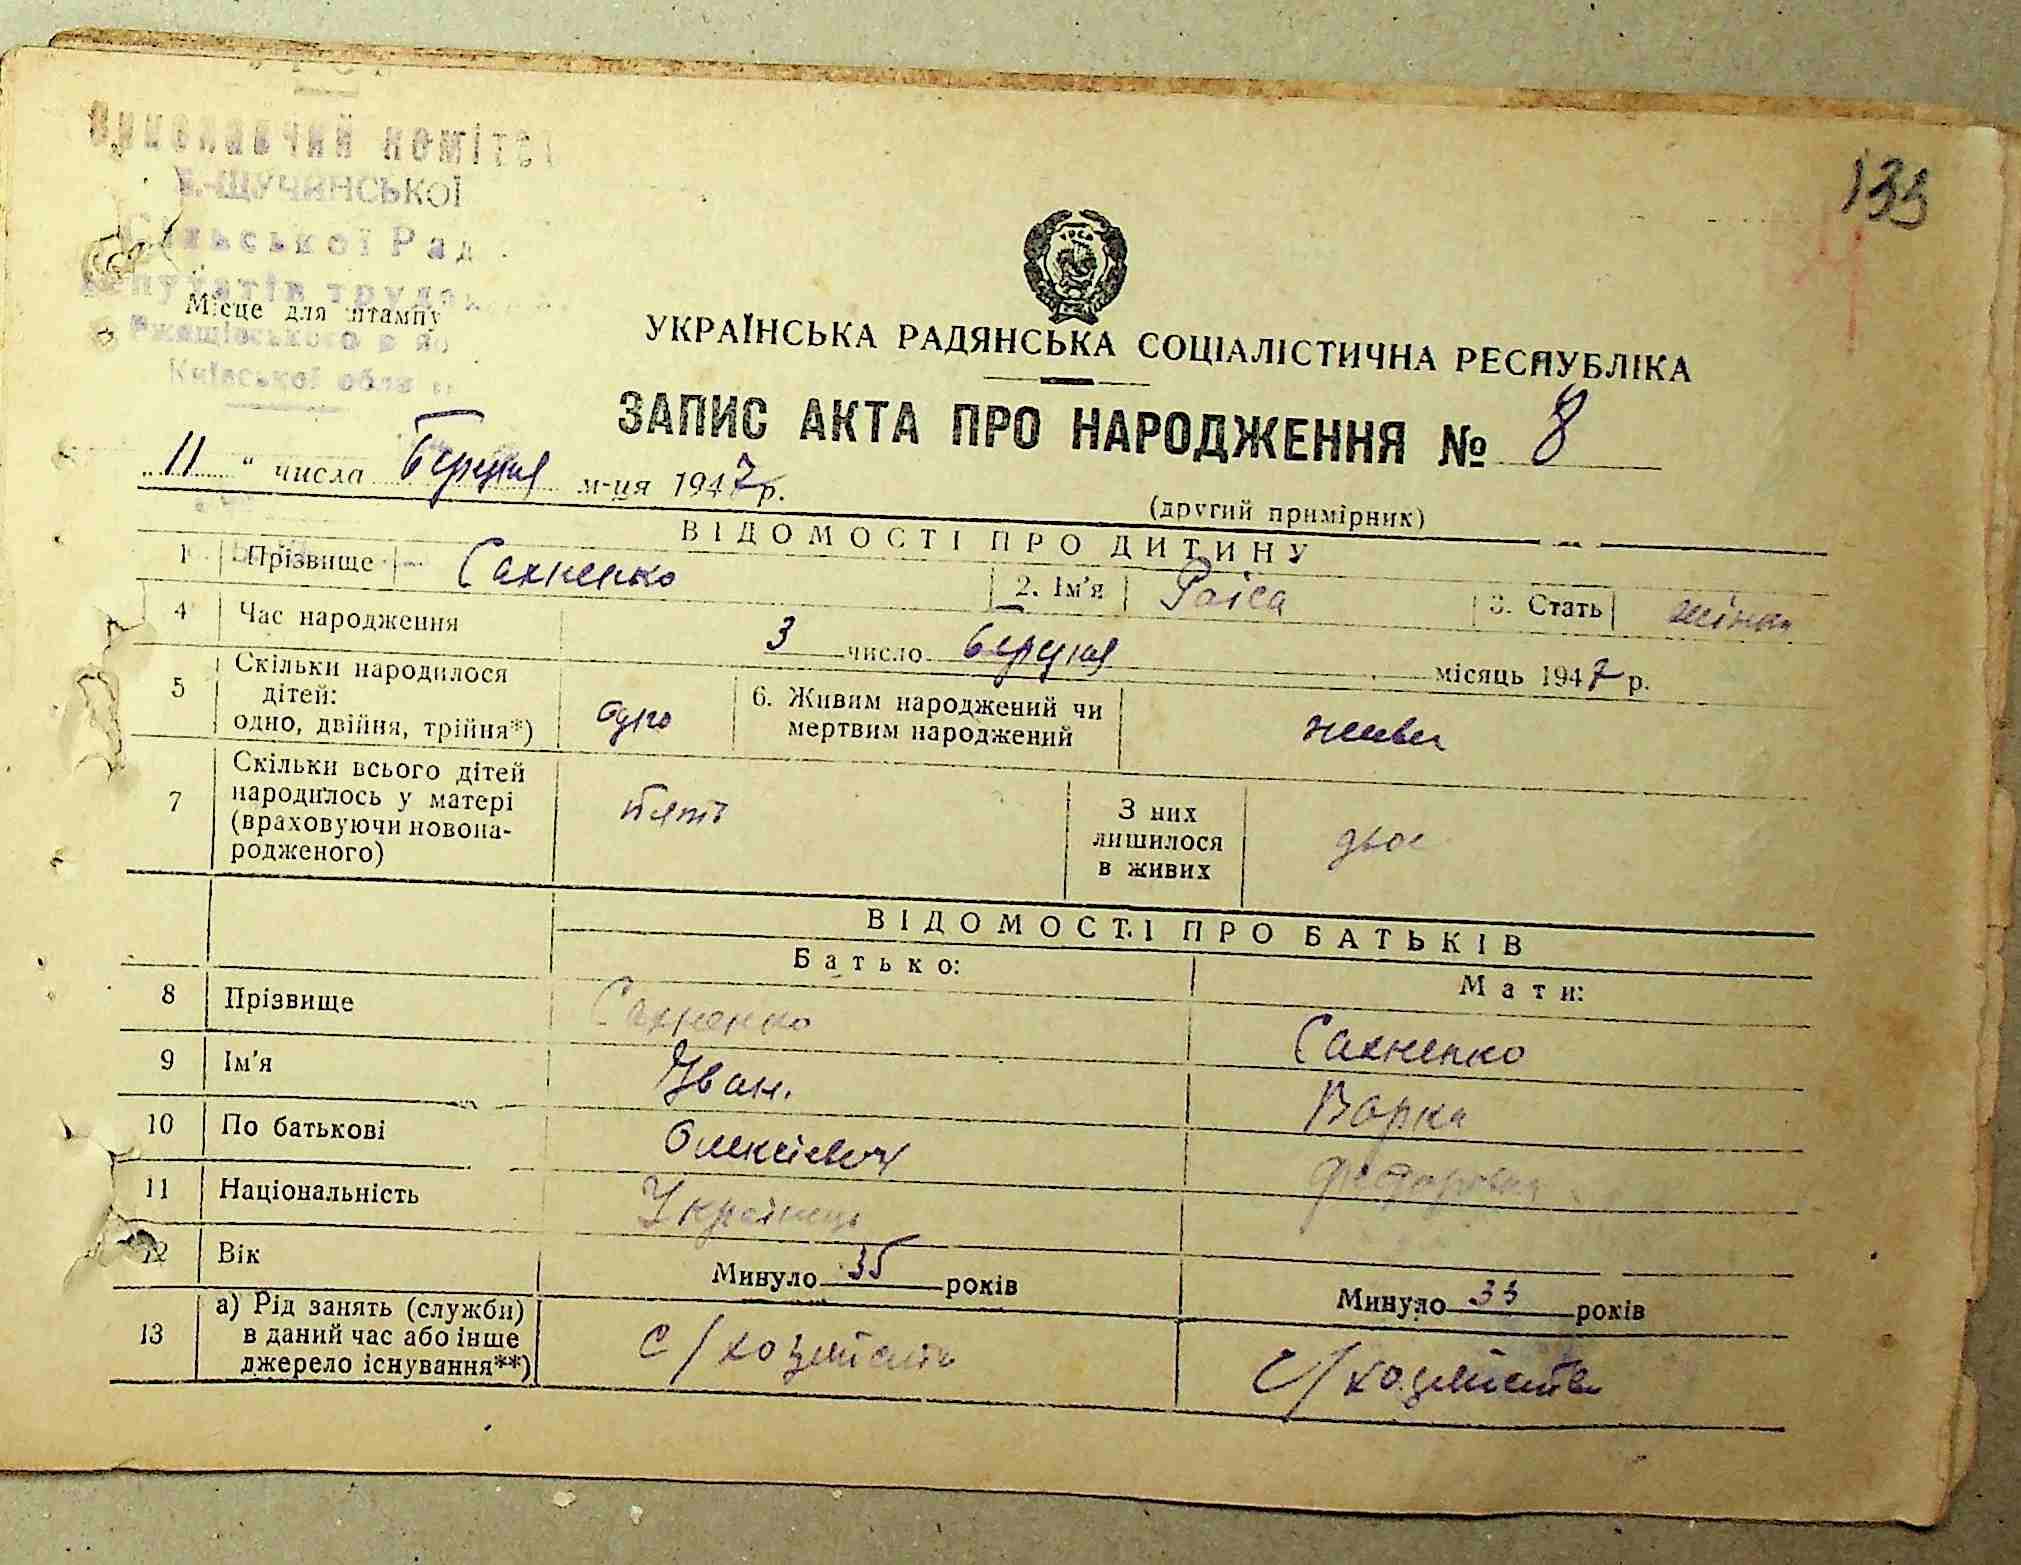 Виконавчий коміте
-ЩУЧИНСЬКОЇ
Сільської Рад
депутатів трудя
Місце для штампу
Ржищівського р
Київської обла
133
УРСР
УКРАЇНСЬКА РАДЯНСЬКА СОЦІАЛІСТИЧНА РЕСПУБЛІКА
ЗАПИС АКТА ПРО НАРОДЖЕННЯ № 8
„11“ числа Березня м-ця 1947 р.
(другий примірник)
ВІДОМОСТІ ПРО ДИТИНУ
1 Прізвище Сахненко 2. Ім'я Раіса 3. Стать жінка
4 Час народження 3 число березня місяць 1947 р.
5 Скільки народилося дітей: одно, двійня, трійня*) одно 6. Живим народжений чи мертвим народжений живи
7 Скільки всього дітей народилось у матері (враховуючи новонародженого) пять З них лишилося в живих двое
ВІДОМОСТІ ПРО БАТЬКІВ
Батько: Мати:
8 Прізвище Сахненко Сахненко
9 Ім'я Іван. Варка
10 По батькові Олексієвич Федоровна
11 Національність Українець
12 Вік Минуло 35 років Минуло 33 років
13 а) Рід занять (служби) в даний час або інше джерело існування**) с/ с/